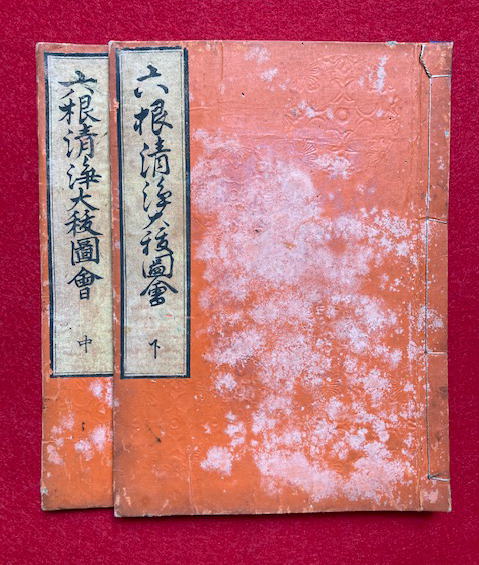 六根清浄大祓圖會
下
六根清海大祓圖會
中